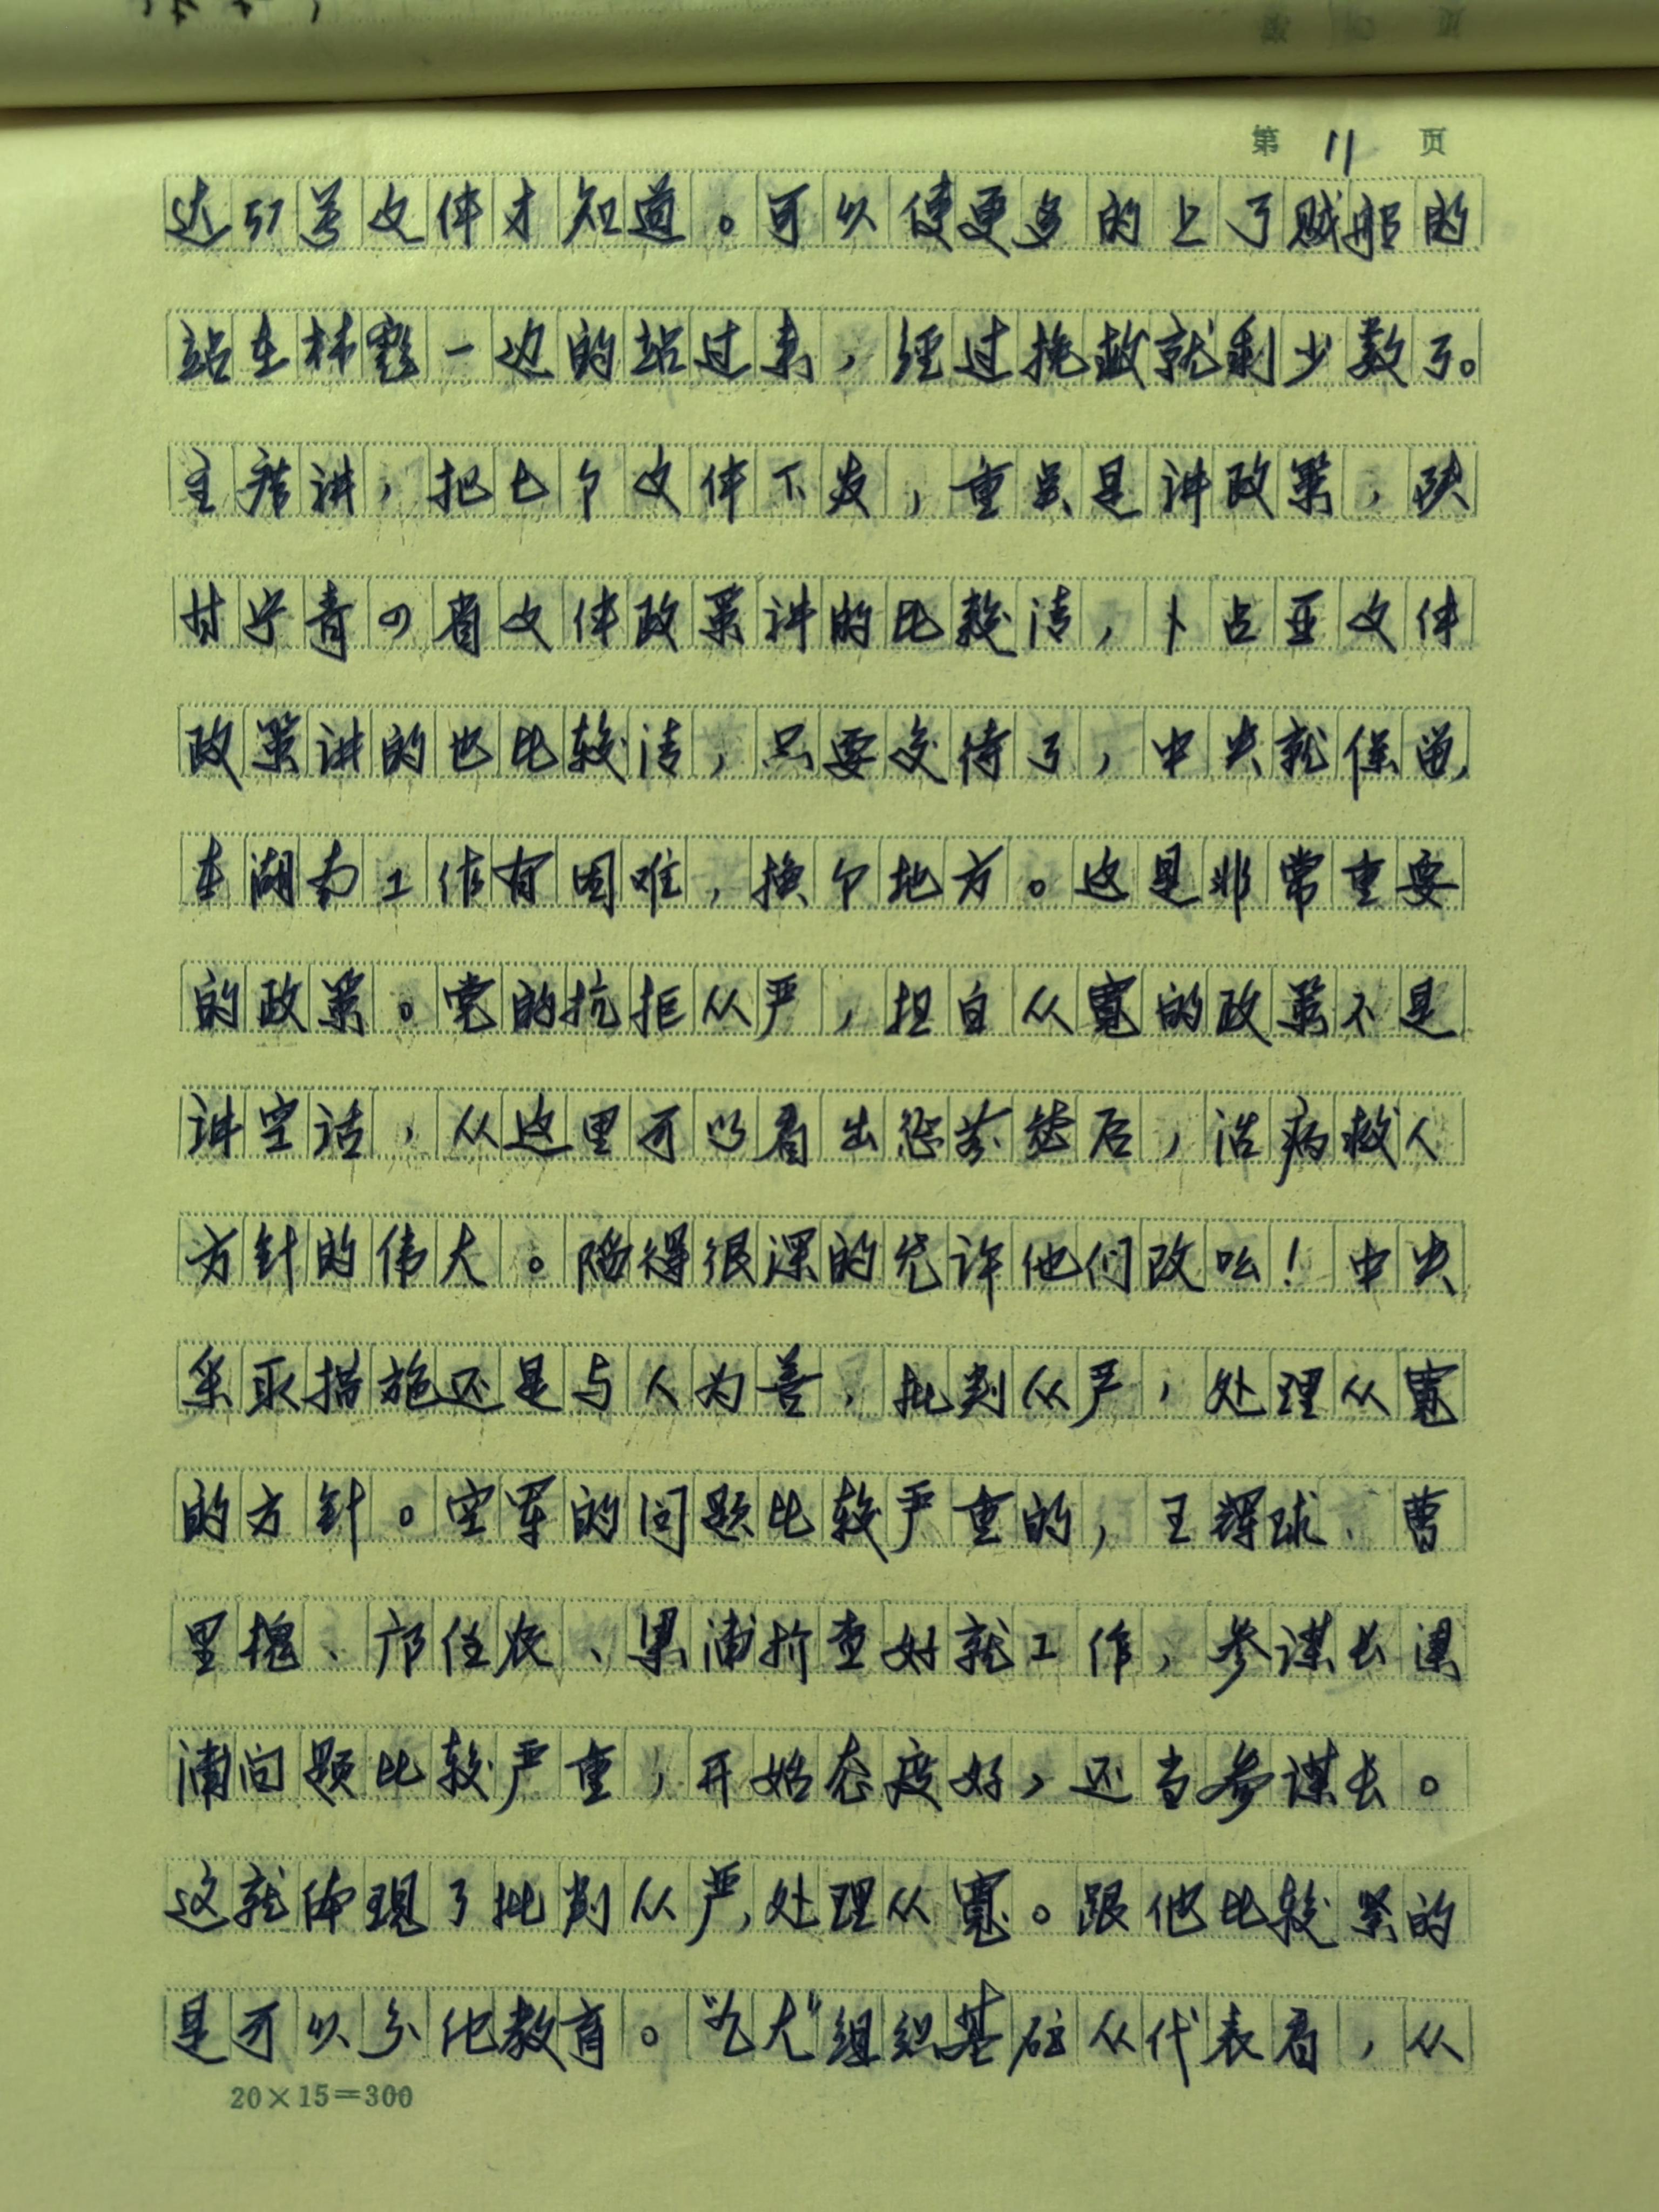 第 11 页
达57号文件才知道。可以使更多的上了贼船的
站在林彪一边的站过来，经过挽救就剩少数了。
主席讲，把七个文件下发，重点是讲政策，陕
甘宁青四省文件政策讲的比较清，卜占亚文件
政策讲的也比较清，只要交待了，中央就保留，
在湖南工作有困难，换个地方。这是非常重要
的政策。党的抗拒从严，坦白从寬的政策不是
讲空话，从这里可以看出惩前毖后，治病救人
方针的伟大。陷得很深的允许他们改吆！中央
采取措施还是与人为善，批判从严，处理从寬
的方针。空军的问题比较严重的，王辉球、曹
里槐、邝任农、梁浦折查好就工作，参谋长梁
浦问题比较严重，开始态度好，还当参谋长。
这就体现了批判从严，处理从寬。跟他比较紧的
是可以分化教育。“九大”组织基础从代表看，从
20×15=300